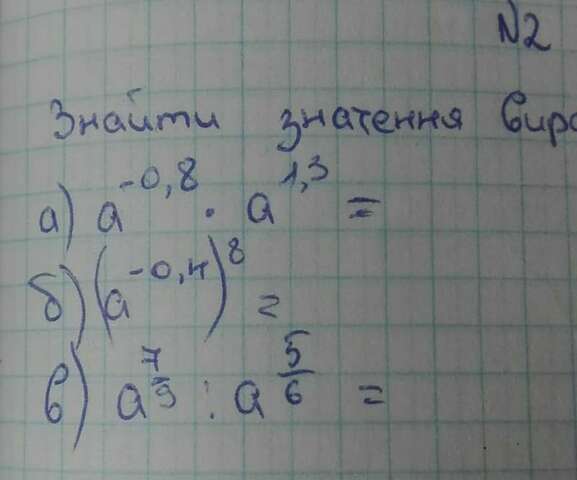 N2
Знайти значення вира
а) a^{-0,8} · a^{1,3} =
б) (a^{-0,4})^8 =
в) a^{7/9} : a^{5/6} =